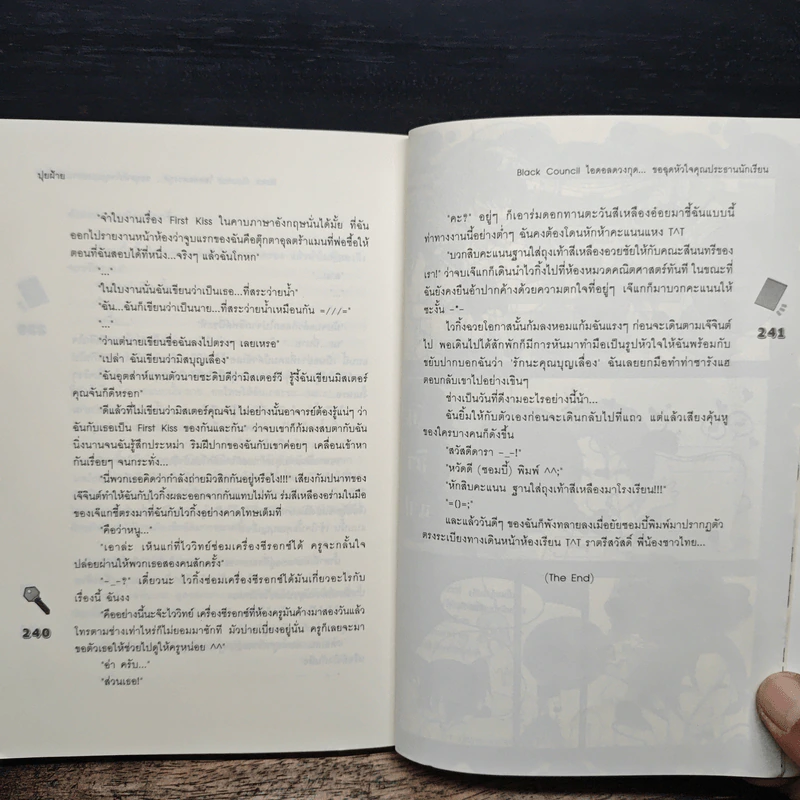 ปุยฝ้าย
"จำใบงานเรื่อง First Kiss ในคาบภาษาอังกฤษนั่นได้มั้ย ที่ฉัน
ออกไปรายงานหน้าห้องว่าจูบแรกของฉันคือตุ๊กตาอุลตร้าแมนที่พ่อซื้อให้
ตอนที่ฉันสอบได้ที่หนึ่ง...จริงๆ แล้วฉันโกหก"
"..."
"ในใบงานนั่นฉันเขียนว่าเป็นเธอ...ที่สระว่ายน้ำ"
"ฉัน...ฉันก็เขียนว่าเป็นนาย...ที่สระว่ายน้ำเหมือนกัน =///="
"..."
"ว่าแต่นายเขียนชื่อฉันลงไปตรงๆ เลยเหรอ"
"เปล่า ฉันเขียนว่ามิสบุญเลื่อง"
"ฉันอุตส่าห์แทนตัวนายซะดิบดีว่ามิสเตอร์วี รู้งี้ฉันเขียนมิสเตอร์
คุณจันก็ดีหรอก"
"ดีแล้วที่ไม่เขียนว่ามิสเตอร์คุณจัน ไม่อย่างนั้นอาจารย์ต้องรู้แน่ๆ ว่า
ฉันกับเธอเป็น First Kiss ของกันและกัน" ว่าจบเขาก็ก้มลงสบตากับฉัน
นิ่งนานจนฉันรู้สึกประหม่า ริมฝีปากของฉันกับเขาค่อยๆ เคลื่อนเข้าหา
กันเรื่อยๆ จนกระทั่ง...
"นี่พวกเธอคิดว่ากำลังถ่ายมิวสิกกันอยู่หรือไง!!!" เสียงกัมปนาทของ
เจ๊จินต์ทำให้ฉันกับไวกิ้งผละออกจากกันแทบไม่ทัน ร่มสีเหลืองอร่ามในมือ
ของเจ๊แกชี้ตรงมาที่ฉันกับไวกิ้งอย่างคาดโทษเต็มที่
"คือว่าหนู..."
"เอาล่ะ เห็นแก่ที่ไววิทย์ซ่อมเครื่องซีรอกซ์ได้ ครูจะกลั้นใจ
ปล่อยผ่านให้พวกเธอสองคนสักครั้ง"
"-_-?" เดี๋ยวนะ ไวกิ้งซ่อมเครื่องซีรอกซ์ได้มันเกี่ยวอะไรกับ
เรื่องนี้ ฉันงง
"คืออย่างนี้นะจ๊ะไววิทย์ เครื่องซีรอกซ์ที่ห้องครูมันค้างมาสองวันแล้ว
โทรตามช่างเท่าไหร่ก็ไม่ยอมมาซักที มัวบ่ายเบี่ยงอยู่นั่น ครูก็เลยจะมา
ขอตัวเธอให้ช่วยไปดูให้ครูหน่อย ^^"
"อ่า ครับ..."
"ส่วนเธอ!"
240
Black Council ไอดอลดวงกุด... ขอฉุดหัวใจคุณประธานนักเรียน
"คะ?" อยู่ๆ ก็เอาร่มดอกทานตะวันสีเหลืองอ๋อยมาชี้ฉันแบบนี้
ท่าทางงานนี้อย่างต่ำๆ ฉันคงต้องโดนหักห้าคะแนนแหง T^T
"บวกสิบคะแนนฐานใส่ถุงเท้าสีเหลืองอวยชัยให้กับคณะสีนนทรีของ
เรา!" ว่าจบเจ๊แกก็เดินนำไวกิ้งไปที่ห้องหมวดคณิตศาสตร์ทันที ในขณะที่
ฉันยังคงยืนอ้าปากค้างด้วยความตกใจที่อยู่ๆ เจ๊แกก็มาบวกคะแนนให้
ซะงั้น -*-
ไวกิ้งอวยโอกาสนั้นก้มลงหอมแก้มฉันแรงๆ ก่อนจะเดินตามเจ๊จินต์
ไป พอเดินไปได้สักพักก็มีการหันมาทำมือเป็นรูปหัวใจให้ฉันพร้อมกับ
ขยับปากบอกฉันว่า 'รักนะคุณบุญเลื่อง' ฉันเลยยกมือทำท่าซารังแฮ
ตอบกลับเขาไปอย่างเขินๆ
ช่างเป็นวันที่ดีงามอะไรอย่างนี้น้า...
ฉันยิ้มให้กับตัวเองก่อนจะเดินกลับไปที่แถว แต่แล้วเสียงคุ้นหู
ของใครบางคนก็ดังขึ้น
"สวัสดีดารา -_-!"
"หวัดดี (ซอมบี้) พิมพ์ ^^;"
"หักสิบคะแนน ฐานใส่ถุงเท้าสีเหลืองมาโรงเรียน!!!"
"=()=;"
และแล้ววันดีๆ ของฉันก็พังทลายลงเมื่อยัยซอมบี้พิมพ์มาปรากฏตัว
ตรงระเบียงทางเดินหน้าห้องเรียน T^T ราตรีสวัสดิ์ พี่น้องชาวไทย...
(The End)
241